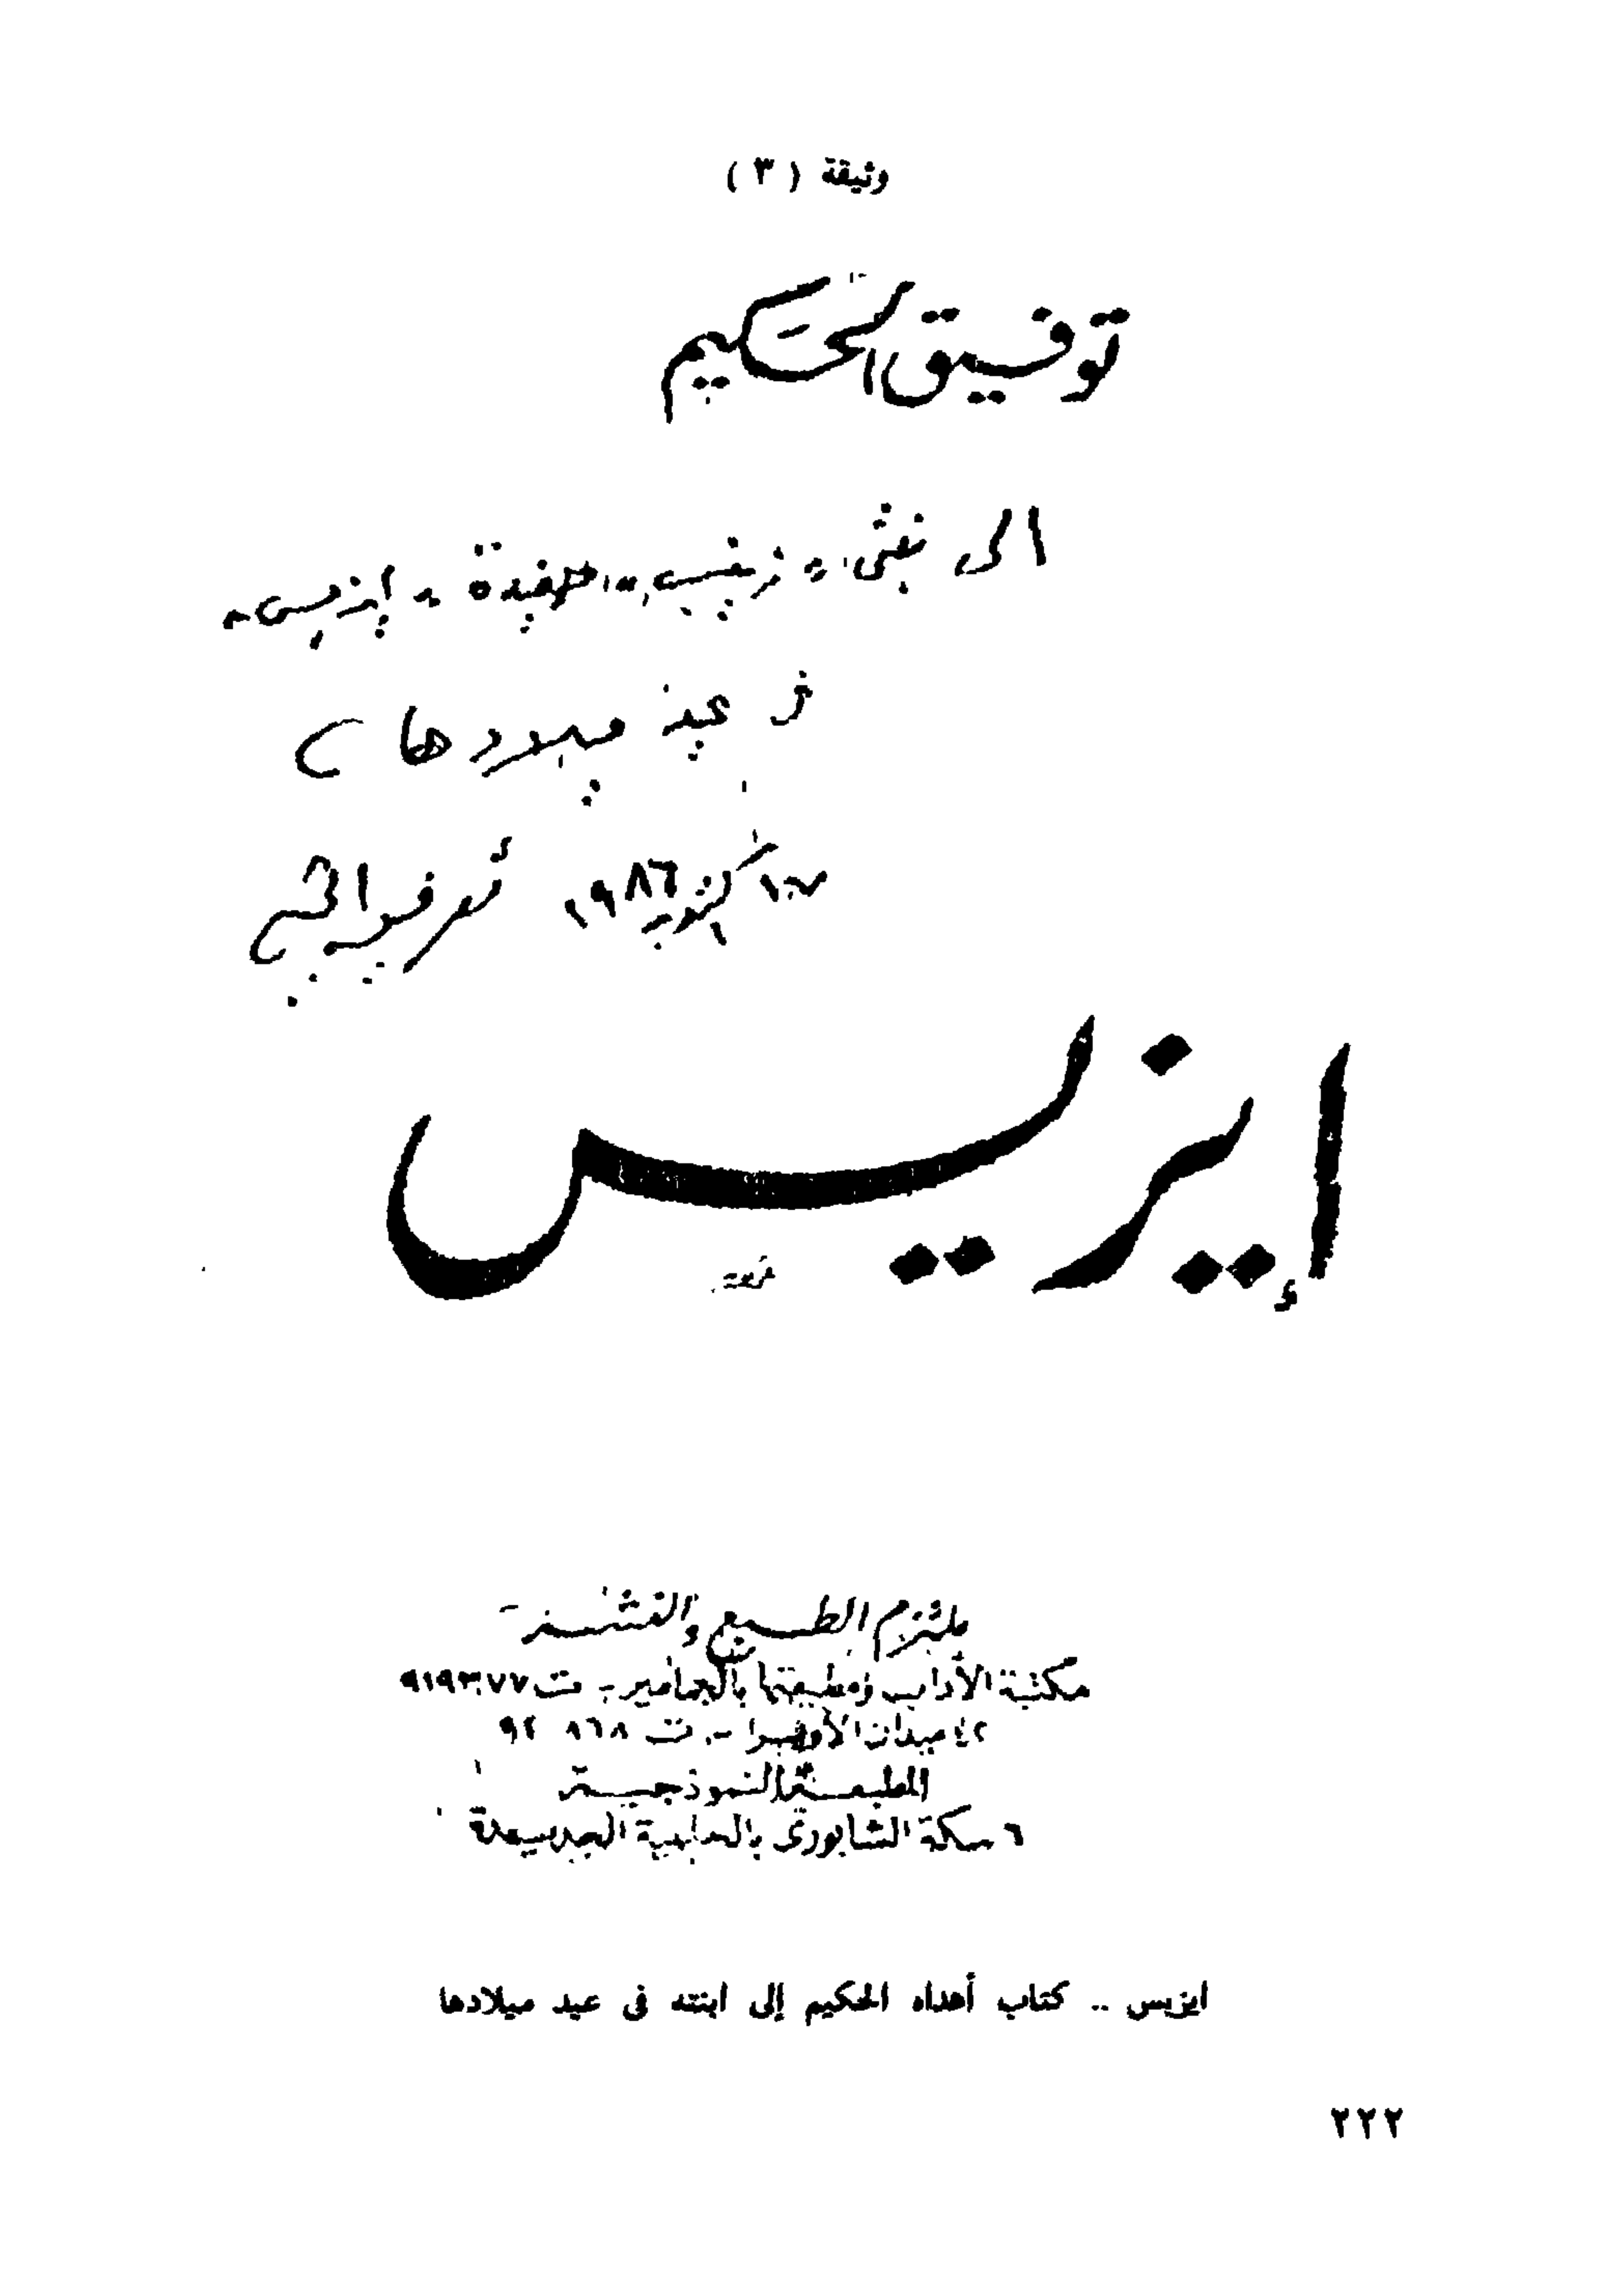 وثيقة ( ٣ )
توفيق الحكيم
الى بنتى " زينب " حفيدة " ايزيس "
فى عيد ميلادها
اكتوبر ١٩٨٦ توفيق الحكيم
إيزيس
ملتزم الطبع والنشر
مكتبة الآداب ومطبعتها بالجماميز - ت ٩١٩٣٧٧
٤٢ ميدان الأوبرا - ت
المطبعة النموذجية
٦ سكة الشابورى بالحلمية الجديدة
ايزيس .. كتاب أهداه الحكيم إلى ابنته فى عيد ميلادها
٢٢٢